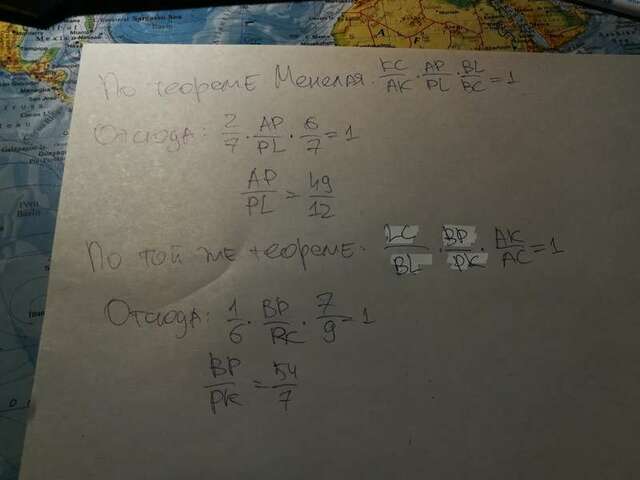 По теореме Менелая \frac{KC}{AK} \cdot \frac{AP}{PL} \cdot \frac{BL}{BC} = 1
Отсюда: \frac{2}{7} \cdot \frac{AP}{PL} \cdot \frac{6}{7} = 1
\frac{AP}{PL} = \frac{49}{12}
По той же теореме: \frac{LC}{BL} \cdot \frac{BP}{PK} \cdot \frac{AK}{AC} = 1
Отсюда: \frac{1}{6} \cdot \frac{BP}{PK} \cdot \frac{7}{9} = 1
\frac{BP}{PK} = \frac{54}{7}